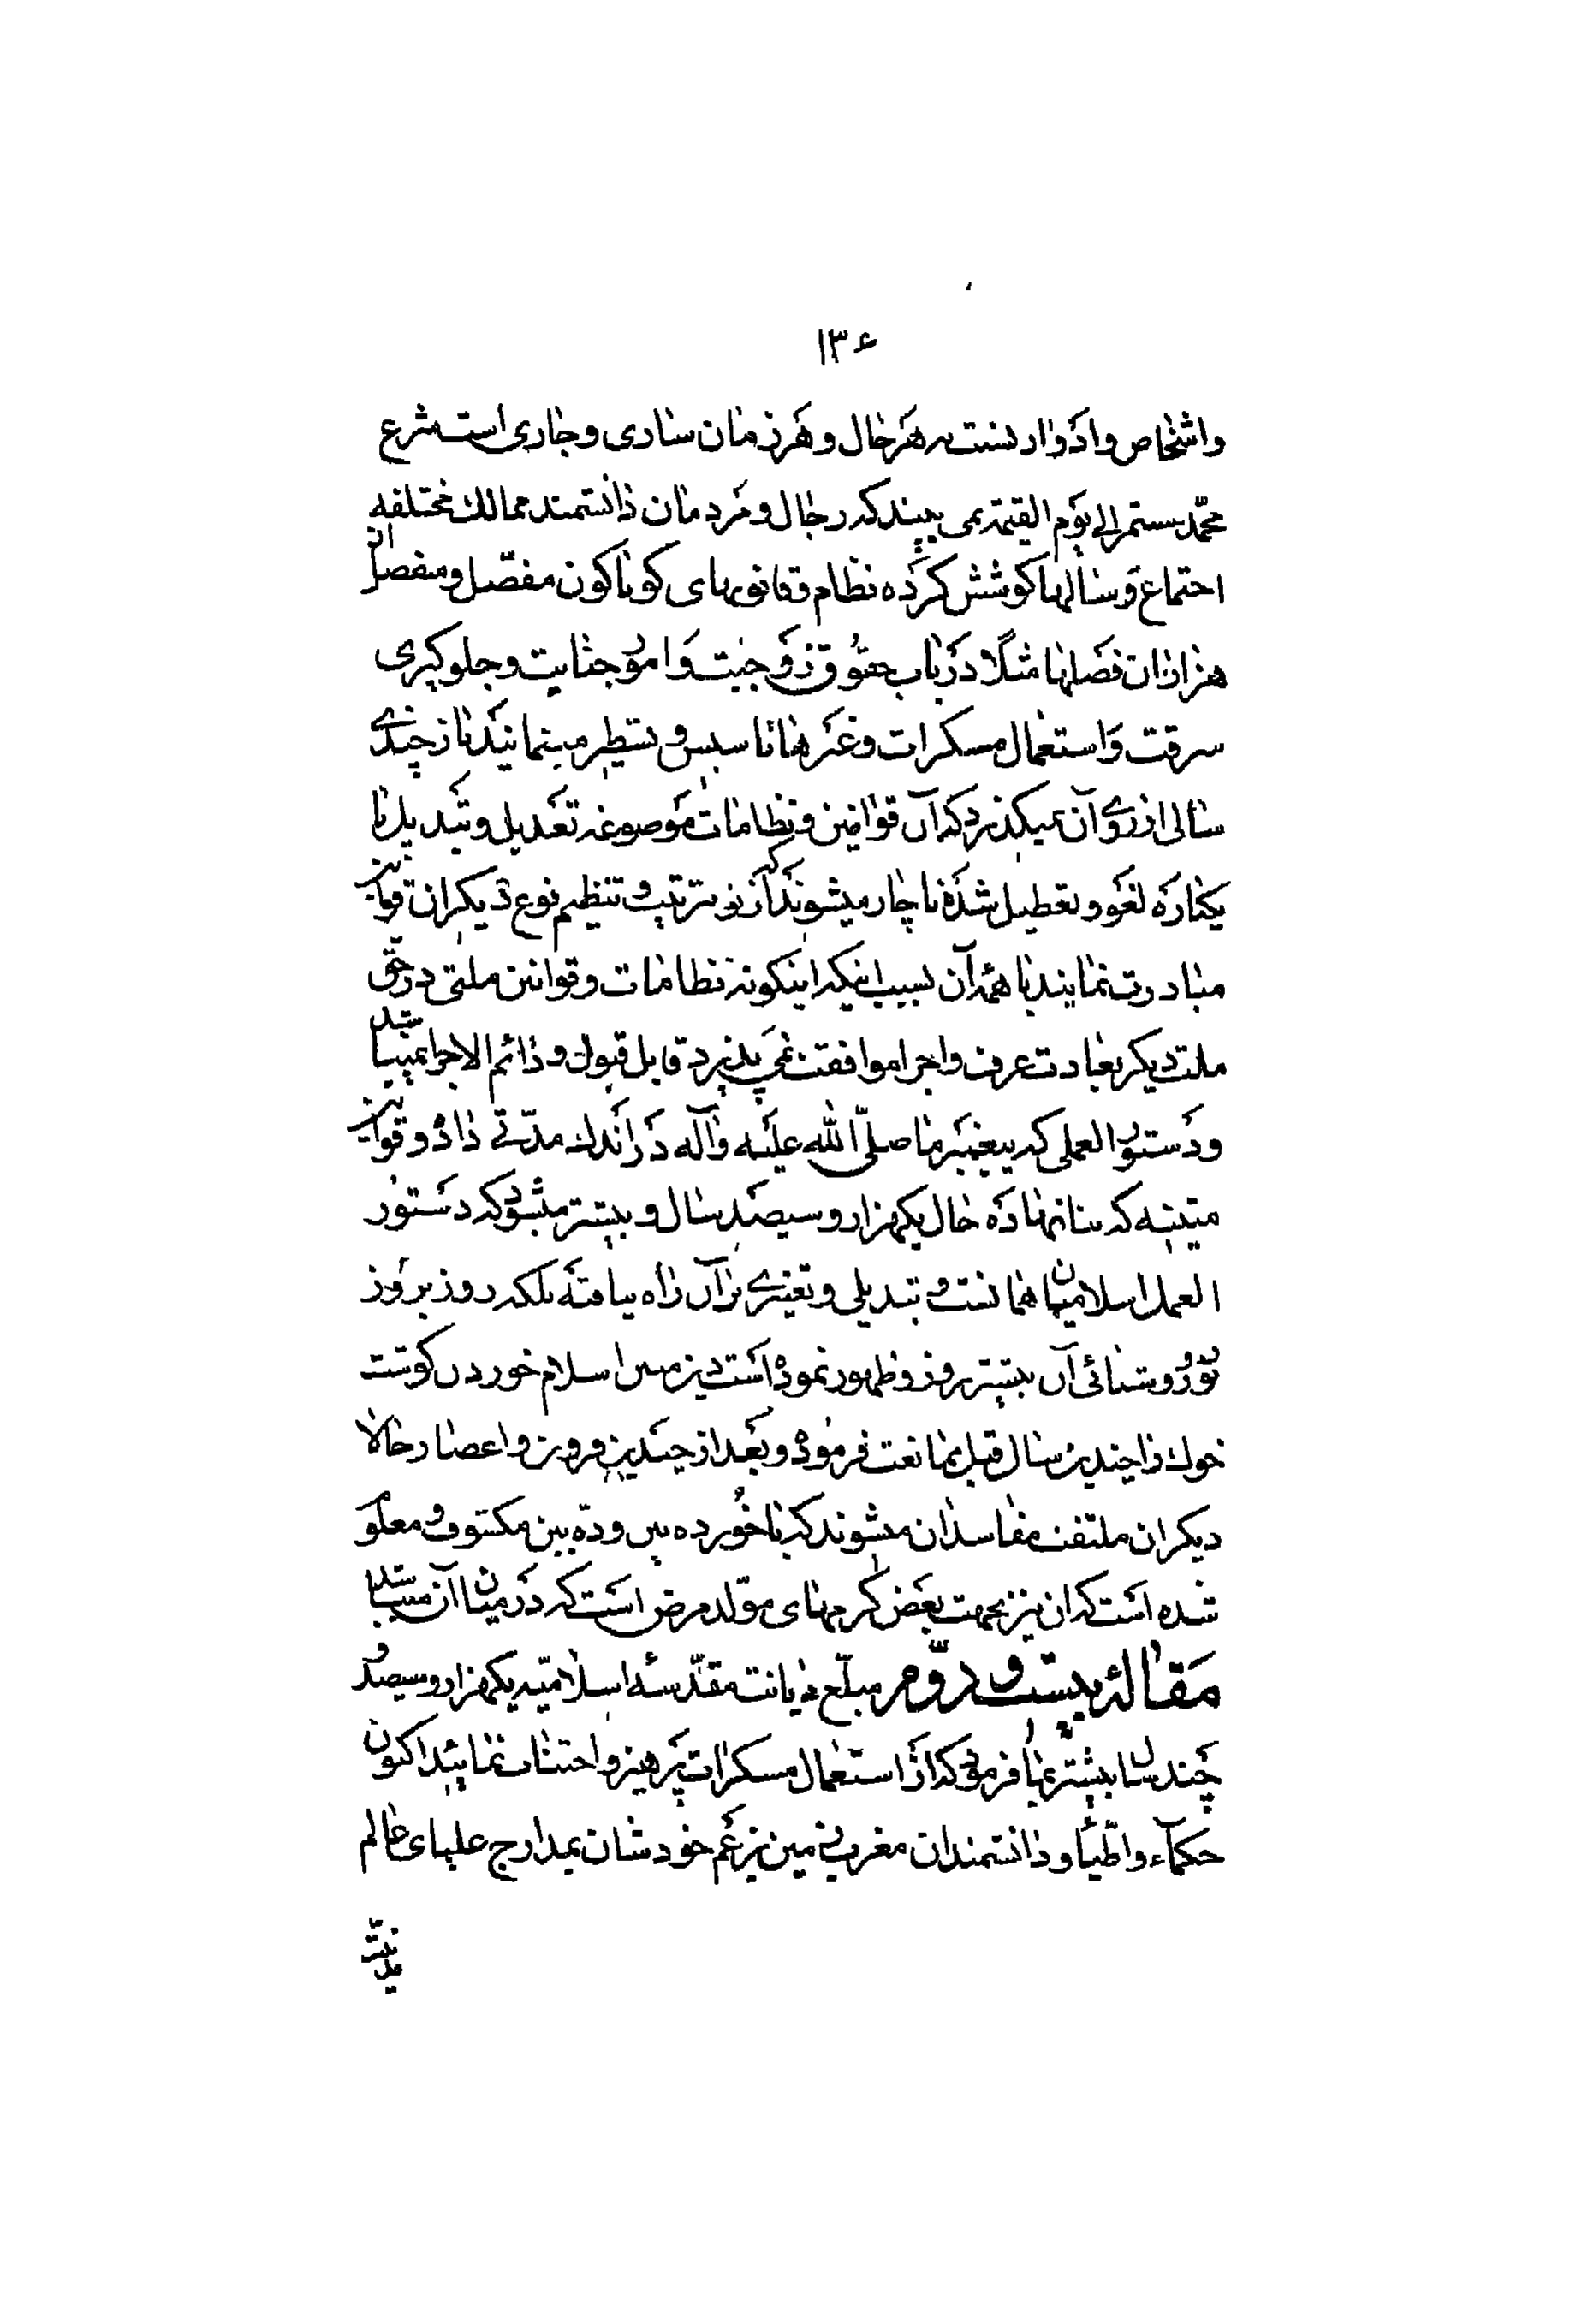 ۱۳۶
واشخاص وادوار بسنت بهر حال و هر زمان ساری و جاری است شرع
محمد مستمر الی یوم القیمة می بیند که رجال و مردمان دانشمند ممالک مختلفه
اجتماع و سالها کوشش کرده نظام و قانونهای کوناکون مفصل و مفصلتر از
هزاران فصلها مثلا در باب حقوق زوجیت و امور جنایت و جلوکیری
سرقت و استعمال مسکرات و غیرها تاسیس و تسطیر مینمایند تا از چندی
سالی از روی آن نمیکذرد که آن قوانین و نظامات موضوعه تعدیل و تبدیل یا
یکباره لغو و تعطیل شده ناچار میشوند که از نو ترتیب و تنظیم نوع دیکر از قوانین
مبادرت نمایند با همه آن بسبب اینکه اینکونه نظامات و قوانین ملتی در حق
ملت دیکر بعادت عرف و اجرا موافقت نمی پذیرد قابل قبول و دائم الاجرا نمیباشد
و دستور العملی که پیغمبر ما صلی الله علیه و آله در اندک مدتی داد و قوانین
متینه که بنا نهاده حال یکهزار و سیصد سال و بیشتر میشود که دستور
العمل اسلامیان همانست و تبدیلی و تغییری بر آن راه نیافته بلکه روز بروز
نور و روشنائی آن بیشتر بروز و ظهور نموده است دین مبین اسلام خوردن کوشت
خوک را چندین سال قبل ممانعت فرموده و بعد از چندین قرون و اعصار حالا
دیکران ملتفت مفاسد آن میشوند که با خورده بین و ذره بین مکشوف و معلوم
شده است که آن نیز بجهت بعض کرمهای مولد مرض است که در میان آن میباشد
مقالۀ بیست و دوم مبلغ دیانت مقدسه اسلامیه یکهزار و سیصد و
چند سال پیشتر بما فرمود که از استعمال مسکرات پرهیز و اجتناب نمائید اکنون
حکماء و اطباء و دانشمندان مغرب زمین بزعم خودشان بمدارج علیهای عالم
مدنیت